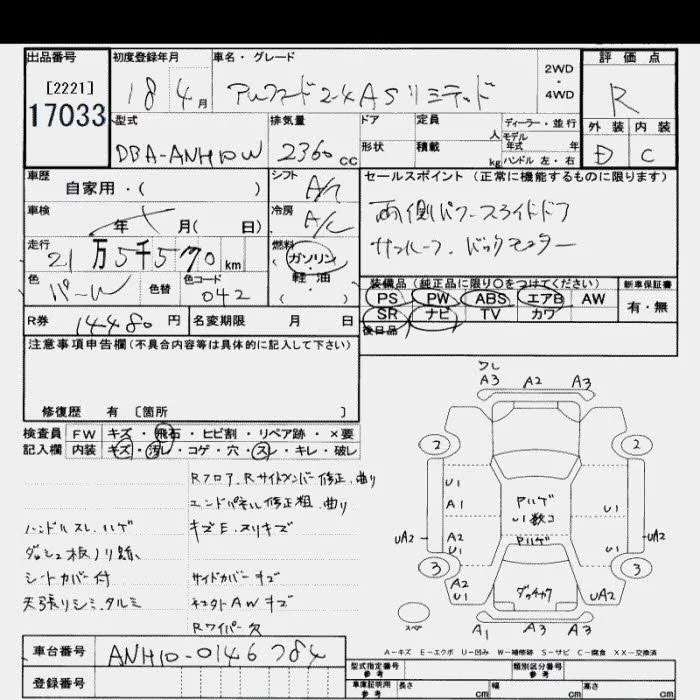 出品番号 初度登録年月 車名・グレード 2WD・4WD 評価点
[2221]
17033
18 4月 アルファード 2.4 AS リミテッド R
型式 排気量 ドア 定員 人 ディーラー・並行 外装 内装
モデル年式 年
DBA-ANH10W 2360cc 形状 積載 kg ハンドル 左・右 D C
車歴 シフト セールスポイント(正常に機能するものに限ります)
自家用・( ) A/T
車検 冷房 両側パワースライドドア
年 月( 日) A/C サンルーフ、バックモニター
走行 燃料
21万5千570km (ガソリン・軽油・( )
色 色替 色コード 装備品(純正品に限り○をつけてください) 新車保証書
パール 042 PS PW ABS エアB AW 有・無
R券 14480円 名変期限 月 日 SR ナビ TV カワ
後日品
注意事項申告欄(不具合内容等は具体的に記入して下さい)
修復歴 有 [箇所 ]
検査員 FW キズ・飛石・ヒビ割・リペア跡・×要
記入欄 内装 キズ・汚レ・コゲ・穴・スレ・キレ・破レ
Rフロア、Rサイドメンバー修正、曲り
エンドパネル修正粗、曲り
ハンドルスレ、ハゲ キズE、スリキズ
ダッシュ板ノリ跡
シートカバー付 サイドカバーキズ
天張リシミ、タルミ AWキズ
Rワイパー欠
ワレ
A3 A2 A3
2 2
U1
A1 U1
アルゲ
U1数コ
アルゲ
UA2 A2 U1 U1 UA2
3 3
A2 U1 UA2
スペア
A1 A3 A3
A=キズ E=エクボ U=凹み W=補修跡 S=サビ C=腐食 XX=交換済
車台番号 ANH10-0146784
登録番号
型式指定番号 参考 類別区分番号 参考
車庫証明用 参考 長さ cm 幅 cm 高さ cm